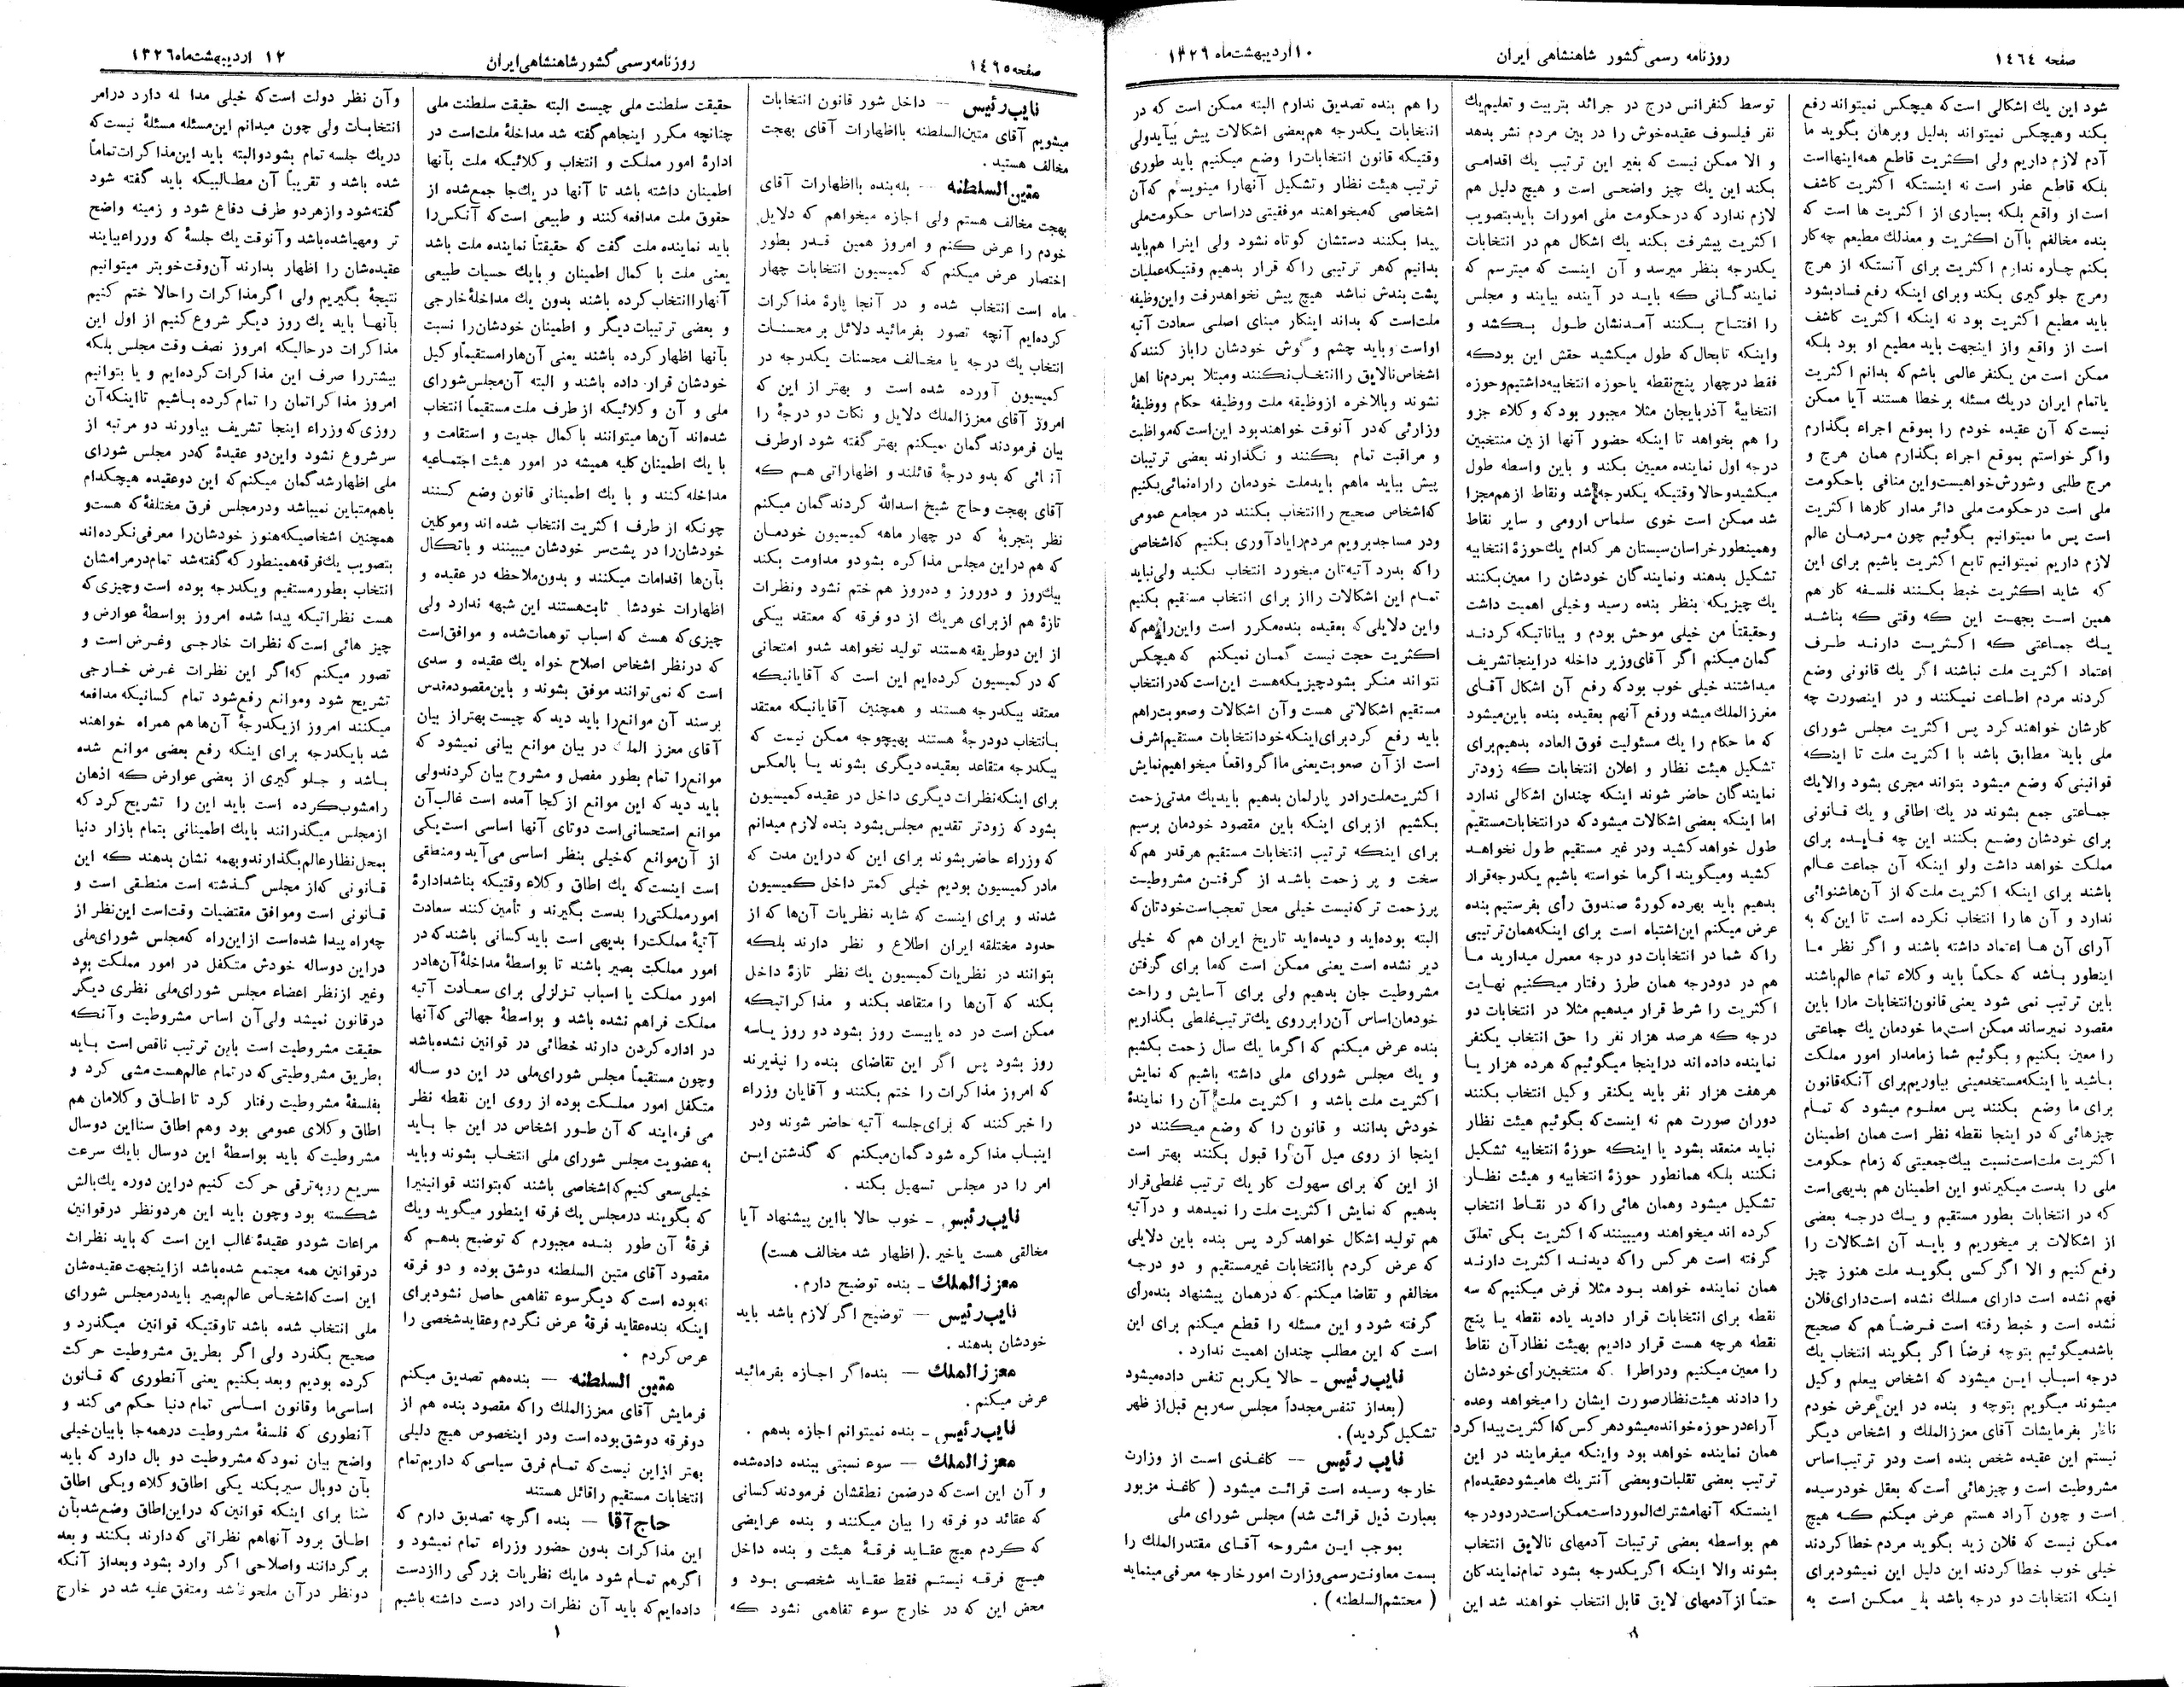 صفحه ١٤٦٤
روزنامه رسمی کشور شاهنشاهی ایران
١٠ اردیبهشت‌ماه ١٣٢٦
شود این یك اشكالی است‌که هیچکس نمیتواند رفع
بکند وهیچکس نمیتواند بدلیل وبرهان بگوید ما
آدم لازم داریم ولی اکثریت قاطع همه‌اینهااست
بلکه قاطع عذر است نه اینستکه اکثریت کاشف
است‌از واقع بلکه بسیاری از اکثریت ها است که
بنده مخالفم باآن اکثریت و معذلك مطیعم چه‌کار
بکنم چاره ندارم اکثریت برای آنستکه از هرج
ومرج جلوگیری بکند وبرای اینکه رفع فسادبشود
باید مطیع اکثریت بود نه اینکه اکثریت کاشف
است از واقع واز اینجهت باید مطیع او بود بلکه
ممکن است من یکنفر عالمی باشم‌که بدانم اکثریت
یاتمام ایران دریك مسئله برخطا هستند آیا ممکن
نیست‌که آن عقیده خودم را بموقع اجراء بگذارم
واگر خواستم بموقع اجراء بگذارم همان هرج و
مرج طلبی وشورش‌خواهیست‌واین منافی باحکومت
ملی است درحکومت‌ملی دائر مدار کارها اکثریت
است پس ما نمیتوانیم بگوئیم چون مردمان عالم
لازم داریم نمیتوانیم تابع اکثریت باشیم برای این
که شاید اکثریت خبط بکنند فلسفه کار هم
همین است بجهت این که وقتی که بناشد
یك جماعتی که اکثریت دارند طرف
اعتماد اکثریت ملت نباشند اگر یك قانونی وضع
کردند مردم اطاعت نمیکنند و در اینصورت چه
کارشان خواهندکرد پس اکثریت مجلس شورای
ملی باید مطابق باشد با اکثریت ملت تا اینکه
قوانینی‌که وضع میشود بتواند مجری بشود والایك
جماعتی جمع بشوند در یك اطاقی و یك قانونی
برای خودشان وضع بکنند این چه فایده برای
مملکت خواهد داشت ولو اینکه آن جماعت عالم
باشند برای اینکه اکثریت ملت‌که از آن‌هاشنوائی
ندارد و آن ها را انتخاب نکرده است تا این‌که به
آرای آن ها اعتماد داشته باشند و اگر نظر ما
اینطور باشد که حکماً باید وکلاء تمام عالم‌باشند
باین ترتیب نمی شود یعنی قانون‌انتخابات مارا باین
مقصود نمیرساند ممکن است‌ما خودمان یك جماعتی
را معین بکنیم و بگوئیم شما زمامدار امور مملکت
باشید یا اینکه‌مستخدمینی بیاوریم‌برای آنکه‌قانون
برای ما وضع بکنند پس معلوم میشود که تمام
چیزهائی‌که در اینجا نقطه نظر است همان اطمینان
اکثریت ملت‌است‌نسبت بیك‌جمعیتی‌که زمام حکومت
ملی را بدست میگیرندو این اطمینان هم بدیهی‌است
که در انتخابات بطور مستقیم و یك درجه بعضی
از اشکالات بر میخوریم و باید آن اشکالات را
رفع کنیم و الا اگر کسی بگوید ملت هنوز چیز
فهم نشده است دارای مسلك نشده است‌دارای‌فلان
نشده است و خبط رفته است فرضاً هم که صحیح
باشدمیگوئیم بتوچه فرضاً اگر بگویند انتخاب یك
درجه اسباب این میشود که اشخاص بیعلم وکیل
میشوند میگویم بتوچه و بنده در این‌عرض خودم
ناظر بفرمایشات آقای معززالملك و اشخاص دیگر
نیستم این عقیده شخص بنده است ودر ترتیب‌اساس
مشروطیت است و چیزهائی است‌که بعقل خودرسیده
است و چون آزاد هستم عرض میکنم که هیچ
ممکن نیست که فلان زید بگوید مردم خطاکردند
خیلی خوب خطاکردند این دلیل این نمیشودبرای
اینکه انتخابات دو درجه باشد بلکه ممکن است به
توسط کنفرانس درج در جرائد بتربیت و تعلیم‌یك
نفر فیلسوف عقیده‌خوش را در بین مردم نشر بدهد
و الا ممکن نیست که بغیر این ترتیب یك اقدامی
بکند این یك چیز واضحی است و هیچ دلیل هم
لازم ندارد که درحکومت ملی امورات بایدبتصویب
اکثریت پیشرفت بکند یك اشکال هم در انتخابات
یکدرجه بنظر میرسد و آن اینست که میترسم که
نمایندگانی که باید در آینده بیایند و مجلس
را افتتاح بکنند آمدنشان طول بکشد و
واینکه تابحال‌که طول میکشید حقش این بودکه
فقط درچهار پنج‌نقطه یاحوزه انتخابیه‌داشتیم‌وحوزه
انتخابیهٔ آذربایجان مثلا مجبور بودکه وکلاء جزو
را هم بخواهد تا اینکه حضور آنها ازبین منتخبین
درجه اول نماینده معیین بکند و باین واسطه طول
میکشیدوحالا وقتیکه یکدرجه شد ونقاط ازهم‌مجزا
شد ممکن است خوی سلماس ارومی و سایر نقاط
وهمینطورخراسان‌سیستان هرکدام یك‌حوزۀ انتخابیه
تشکیل بدهند ونمایندگان خودشان را معین‌بکنند
یك چیزیکه بنظر بنده رسید وخیلی اهمیت داشت
وحقیقتاً من خیلی موحش بودم و بیاناتیکه کردند
گمان میکنم اگر آقای‌وزیر داخله دراینجاتشریف
میداشتند خیلی خوب بودکه رفع آن اشکال آقای
مغررالملك میشد ورفع آنهم بعقیده بنده باین‌میشود
که ما حکام را یك مسئولیت فوق العاده بدهیم‌برای
تشکیل هیئت نظار و اعلان انتخابات که زودتر
نمایندگان حاضر شوند اینکه چندان اشکالی ندارد
اما اینکه بعضی اشکالات میشودکه درانتخابات‌مستقیم
طول خواهدکشید ودر غیر مستقیم طول نخواهد
کشید ومیگویند اگرما خواسته باشیم یکدرجه‌قرار
بدهیم باید بهرده‌کورۀ صندوق رأی بفرستیم بنده
عرض میکنم این‌اشتباه است برای اینکه‌همان‌ترتیبی
راکه شما در انتخابات دو درجه معمول میدارید ما
هم در دودرجه همان طرز رفتار میکنیم نهایت
اکثریت را شرط قرار میدهیم مثلا در انتخابات دو
درجه که هرصد هزار نفر را حق انتخاب یکنفر
نماینده داده اند دراینجا میگوئیم‌که هرده هزار یا
هرهفت هزار نفر باید یکنفر وکیل انتخاب بکنند
دوران صورت هم نه اینست‌که بگوئیم هیئت نظار
نباید منعقد بشود یا اینکه حوزۀ انتخابیه تشکیل
نکنند بلکه همانطور حوزۀ انتخابیه و هیئت نظار
تشکیل میشود وهمان هائی راکه در نقاط انتخاب
کرده اند میخواهند ومیبینندکه اکثریت بکی تعلق
گرفته است هرکس راکه دیدند اکثریت دارند
همان نماینده خواهد بود مثلا فرض میکنیم‌که سه
نقطه برای انتخابات قرار دادید یاده نقطه یا پنج
نقطه هرچه هست قرار دادیم بهیئت نظارآن نقاط
را معین میکنیم ودراطرا که منتخبین‌رأی‌خودشان
را دادند هیئت‌نظارصورت ایشان را میخواهد وعده
آراءدرحوزه‌خوانده‌میشودهرکس‌که‌اکثریت‌پیداکرد
همان نماینده خواهد بود واینکه میفرمایند در این
ترتیب بعضی تقلبات‌وبعضی آنتریك هامیشودعقیده‌ام
اینستکه آنهامشترك‌الورداست‌ممکن‌است‌دردودرجه
هم بواسطه بعضی ترتیبات آدمهای نالایق انتخاب
بشوند والا اینکه اگریکدرجه بشود تمام‌نمایندگان
حتماً ازآدمهای لایق قابل انتخاب خواهند شد این
را هم بنده تصدیق ندارم البته ممکن است که در
انتخابات یکدرجه هم‌بعضی اشکالات پیش بیآیدولی
وقتیکه قانون انتخابات‌را وضع میکنیم باید طوری
ترتیب هیئت نظار وتشکیل آنهارا مینویسم که‌آن
اشخاصی که‌میخواهند موفقیتی دراساس حکومت‌ملی
پیدا بکنند دستشان کوتاه نشود ولی اینرا هم‌باید
بدانیم که‌هر ترتیبی راکه قرار بدهیم وقتیکه‌عملیات
پشت بندش نباشد هیچ پیش نخواهدرفت واین‌وظیفه
ملت‌است که بداند اینکار مبنای اصلی سعادت آتیه
اواست وباید چشم و گوش خودشان راباز کنندکه
اشخاص‌نالایق راانتخاب‌نکنند ومبتلا بمردم‌نا اهل
نشوند وبالاخره ازوظیفه ملت ووظیفه حکام ووظیفهٔ
وزارتی که‌در آنوقت خواهندبود این‌است‌که‌مواظبت
و مراقبت تمام بکنند و نگذارند بعضی ترتیبات
پیش بیاید ماهم بایدملت خودمان راراه‌نمائی‌بکنیم
که‌اشخاص صحیح راانتخاب بکنند در مجامع عمومی
ودر مساجدبرویم مردم‌رایادآوری بکنیم که‌اشخاصی
راکه بدرد آتیه‌تان میخورد انتخاب بکنید ولی‌نباید
تمام این اشکالات رااز برای انتخاب مستقیم بکنیم
واین دلایلی‌که بعقیده بنده‌مکرر است واین‌راهم‌که
اکثریت حجت نیست گمان نمیکنم که‌هیچکس
نتواند منکر بشودچیزیکه‌هست این‌است‌که‌درانتخاب
مستقیم اشکالاتی هست وآن اشکالات وصعوبت‌راهم
باید رفع کردبرای‌اینکه‌خودانتخابات مستقیم‌اشرف
است ازآن صعوبت‌یعنی مااگرواقعاً میخواهیم‌نمایش
اکثریت‌ملت‌رادر پارلمان بدهیم بایدیك مدتی‌زحمت
بکشیم ازبرای اینکه باین مقصود خودمان برسیم
برای اینکه ترتیب انتخابات مستقیم هرقدر هم‌که
سخت و پر زحمت باشد از گرفتن مشروطیت
پرزحمت ترکه‌نیست خیلی محل تعجب‌است‌خودتان‌که
البته بوده‌اید و دیده‌اید تاریخ ایران هم که خیلی
دیر نشده است یعنی ممکن است که‌ما برای گرفتن
مشروطیت جان بدهیم ولی برای آسایش و راحت
خودمان‌اساس آن‌رابرروی یك‌ترتیب‌غلطی بگذاریم
بنده عرض میکنم که اگرما یك سال زحمت بکشیم
و یك مجلس شورای ملی داشته باشیم که نمایش
اکثریت ملت باشد و اکثریت ملت آن را نمایندۀ
خودش بدانند و قانون را که وضع میکنند در
اینجا از روی میل آن‌را قبول بکنند بهتر است
از این که برای سهولت کار یك ترتیب غلطی‌قرار
بدهیم که نمایش اکثریت ملت را نمیدهد و درآتیه
هم تولید اشکال خواهدکرد پس بنده باین دلایلی
که عرض کردم باانتخابات غیرمستقیم و دو درجه
مخالفم و تقاضا میکنم که درهمان پیشنهاد بنده‌رأی
گرفته شود و این مسئله را قطع میکنم برای این
است که این مطلب چندان اهمیت ندارد .
نایب‌رئیس ـ حالا یکربع تنفس داده‌میشود
(بعداز تنفس‌مجدداً مجلس سه‌ربع قبل‌از ظهر
تشکیل‌گردید).
نایب رئیس -- کاغذی است از وزارت
خارجه رسیده است قرائت میشود ( کاغذ مزبور
بعبارت ذیل قرائت شد) مجلس شورای ملی
بموجب این مشروحه آقای مقتدرالملك را
بسمت معاونت‌رسمی‌وزارت امورخارجه معرفی‌مینماید
( محتشم‌السلطنه ) .
صفحه ١٤٦٥
روزنامه‌رسمی کشورشاهنشاهی‌ایران
١٢ اردیبهشت‌ماه ١٣٢٦
نایب‌رئیس -- داخل شور قانون انتخابات
میشویم آقای متین‌السلطنه بااظهارات آقای بهجت
مخالف هستید .
متین‌السلطنه -- بله‌بنده بااظهارات آقای
بهجت مخالف هستم ولی اجازه میخواهم که دلایل
خودم را عرض کنم و امروز همین قدر بطور
اختصار عرض میکنم که کمیسیون انتخابات چهار
ماه است انتخاب شده و در آنجا پارۀ مذاکرات
کرده‌ایم آنچه تصور بفرمائید دلائل بر محسنات
انتخاب یك درجه یا مخالف محسنات یکدرجه در
کمیسیون آورده شده است و بهتر از این که
امروز آقای معززالملك دلایل و نکات دو درجهٔ را
بیان فرمودند گمان نمیکنم بهترگفته شود ازطرف
آنائی که بدو درجهٔ قائلند و اظهاراتی هم که
آقای بهجت وحاج شیخ اسدالله کردندگمان میکنم
نظر بتجربهٔ که در چهار ماهه کمیسیون خودمان
که هم دراین مجلس مذاکره بشودو مداومت بکند
بیك‌روز و دوروز و ده‌روز هم ختم نشود ونظرات
تازۀ هم ازبرای هریك از دوفرقه که معتقد بیکی
از این دوطریقه هستند تولید نخواهد شدو امتحانی
که درکمیسیون کرده‌ایم این است که آقایانیکه
معتقد بیکدرجه هستند و همچنین آقایانیکه معتقد
بانتخاب دودرجهٔ هستند بهیچوجه ممکن نیست که
بیکدرجه متقاعد بعقیده دیگری بشوند یا بالعکس
برای اینکه‌نظرات دیگری داخل در عقیده کمیسیون
بشود که زودتر تقدیم مجلس‌بشود بنده لازم میدانم
که وزراء حاضربشوند برای این که دراین مدت که
مادرکمیسیون بودیم خیلی کمتر داخل کمیسیون
شدند و برای اینست که شاید نظریات آن‌ها که از
حدود مختلفه ایران اطلاع و نظر دارند بلکه
بتوانند در نظریات کمیسیون یك نظر تازۀ داخل
بکند که آن‌ها را متقاعد بکند و مذاکراتیکه
ممکن است در ده یابیست روز بشود دو روز یاسه
روز بشود پس اگر این تقاضای بنده را نپذیرند
که امروز مذاکرات را ختم بکنند و آقایان وزراء
را خبرکنند که برای‌جلسه آتیه حاضر شوند ودر
اینباب مذاکره شودگمان‌میکنم که گذشتن‌این
امر را در مجلس تسهیل بکند .
نایب‌رئیس ـ خوب حالا بااین پیشنهاد آیا
مخالفی هست یاخیر .( اظهار شد مخالف هست)
معززالملك ـ بنده توضیح دارم .
نایب‌رئیس -- توضیح اگر لازم باشد باید
خودشان بدهند .
معززالملك -- بنده‌اگر اجازه بفرمائید
عرض میکنم .
نایب‌رئیس ـ بنده نمیتوانم اجازه بدهم .
معززالملك -- سوء نسبتی ببنده داده‌شده
و آن این است‌که درضمن نطقشان فرمودندکسانی
که عقائد دو فرقه را بیان میکنند و بنده عرایضی
که کردم هیچ عقاید فرقهٔ هیئت و بنده داخل
هیچ فرقه نیستم فقط عقاید شخصی بود و
محض این که در خارج سوء تفاهمی نشود که
حقیقت سلطنت ملی چیست البته حقیقت سلطنت ملی
چنانچه مکرر اینجاهم‌گفته شد مداخلهٔ ملت‌است در
ادارۀ امور مملکت و انتخاب وکلائیکه ملت بآنها
اطمینان داشته باشد تا آنها در یك‌جا جمع‌شده از
حقوق ملت مدافعه‌کنند و طبیعی است‌که آنکس‌را
باید نماینده ملت گفت که حقیقتاً نماینده ملت باشد
یعنی ملت با کمال اطمینان و بایك حسیات طبیعی
آنهاراانتخاب‌کرده باشند بدون یك مداخلهٔ‌خارجی
و بعضی ترتیبات دیگر و اطمینان خودشان‌را نسبت
بآنها اظهارکرده باشند یعنی آن‌هارامستقیماًوکیل
خودشان قرار داده باشند و البته آن‌مجلس‌شورای
ملی و آن وکلائیکه از طرف ملت‌مستقیماً انتخاب
شده‌اند آن‌ها میتوانند باکمال جدیت و استقامت و
با یك اطمینان کلیه همیشه در امور هیئت اجتماعیه
مداخله‌کنند و با یك اطمینانی قانون وضع کنند
چونکه از طرف اکثریت انتخاب شده اند وموکلین
خودشان‌را در پشت‌سر خودشان میبینند و باتکال
بآن‌ها اقدامات میکنند و بدون‌ملاحظه در عقیده و
اظهارات خودشان ثابت‌هستند این شبهه ندارد ولی
چیزی‌که هست که اسباب توهمات‌شده و موافق‌است
که درنظر اشخاص اصلاح خواه یك عقیده و سدی
است که نمی‌توانند موفق بشوند و باین‌مقصودمقدس
برسند آن موانع‌را باید دید که چیست بهتراز بیان
آقای معزز الملك در بیان موانع بیانی نمیشود که
موانع‌را تمام بطور مفصل و مشروح بیان کردندولی
باید دید که این موانع ازکجا آمده است غالب‌آن
موانع استحسانی‌است دوتای آنها اساسی است‌یکی
از آن‌موانع که‌خیلی بنظر اساسی می‌آید ومنطقی
است اینست‌که یك اطاق وکلاء وقتیکه بناشدادارۀ
امورمملکتی‌را بدست بگیرند و تأمین‌کنند سعادت
آتیهٔ مملکت‌را بدیهی است بایدکسانی باشندکه در
امور مملکت بصیر باشند تا بواسطهٔ مداخلهٔ‌آن‌هادر
امور مملکت یا اسباب تزلزلی برای سعادت آتیه
مملکت فراهم نشده باشد و بواسطهٔ جهالتی که‌آنها
در اداره‌کردن دارند خطائی در قوانین نشده‌باشد
وچون مستقیماً مجلس شورای‌ملی در این دو ساله
متکفل امور مملکت بوده از روی این نقطه نظر
می فرمایند که آن طور اشخاص در این جا باید
به‌عضویت مجلس شورای ملی انتخاب بشوند وباید
خیلی‌سعی کنیم‌که‌اشخاصی باشند که‌بتوانند قوانینرا
که بگویند درمجلس یك فرقه اینطور میگوید ویك
فرقهٔ آن طور بنده مجبورم که توضیح بدهم که
مقصود آقای متین السلطنه دوشق بوده و دو فرقه
نه‌بوده است که دیگرسوء تفاهمی حاصل نشودبرای
اینکه بنده‌عقاید فرقهٔ عرض نکردم وعقایدشخصی را
عرض‌کردم .
متین السلطنه -- بنده‌هم تصدیق میکنم
فرمایش آقای معززالملك راکه مقصود بنده هم از
دوفرقه دوشق‌بوده است ودر اینخصوص هیچ دلیلی
بهتر ازاین نیست‌که تمام فرق سیاسی‌که داریم‌تمام
انتخابات مستقیم راقائل هستند
حاج‌آقا -- بنده اگرچه تصدیق دارم که
این مذاکرات بدون حضور وزراء تمام نمیشود و
اگرهم تمام شود مایك نظریات بزرگی راازدست
داده‌ایم‌که باید آن نظرات رادر دست داشته باشیم
وآن نظر دولت است‌که خیلی مداخله دارد درامر
انتخابات ولی چون میدانم این‌مسئله مسئلهٔ نیست‌که
دریك جلسه تمام بشودوالبته باید این‌مذاکرات‌تماماً
شده باشد و تقریباً آن مطالبیکه باید گفته شود
گفته‌شود وازهردو طرف دفاع شود و زمینه واضح
تر ومهیاشده‌باشد وآنوقت یك جلسهٔ که وزراءبیایند
عقیده‌شان را اظهار بدارند آن‌وقت‌خوبتر میتوانیم
نتیجهٔ بگیریم ولی اگرمذاکرات راحالا ختم کنیم
بآنها باید یك روز دیگر شروع‌کنیم از اول این
مذاکرات درحالیکه امروز نصف وقت مجلس بلکه
بیشتررا صرف این مذاکرات‌کرده‌ایم و یا بتوانیم
امروز مذاکراتمان را تمام‌کرده باشیم تااینکه‌آن
روزی‌که وزراء اینجا تشریف بیاورند دو مرتبه از
سرشروع نشود واین‌دو عقیدۀ که‌در مجلس شورای
ملی اظهارشدگمان میکنم‌که این دوعقیده هیچکدام
باهم‌متباین نمیباشد ودرمجلس فرق مختلفهٔ‌که هست‌و
همچنین اشخاصیکه‌هنوز خودشان‌را معرفی‌نکرده‌اند
بتصویب یك‌فرقه‌همینطور که‌گفته‌شد تمام‌درمرامشان
انتخاب بطورمستقیم ویکدرجه بوده است وچیزی‌که
هست نظراتیکه پیدا شده امروز بواسطهٔ عوارض و
چیز هائی است‌که نظرات خارجی وغرض است و
تصور میکنم که‌اگر این نظرات غرض خارجی
تشریح شود وموانع رفع‌شود تمام کسانیکه مدافعه
میکنند امروز ازیکدرجهٔ آن‌ها هم همراه خواهند
شد بایکدرجه برای اینکه رفع بعضی موانع شده
باشد و جلو گیری از بعضی عوارض که اذهان
رامشوب‌کرده است باید این را تشریح کرد که
ازمجلس میگذرانند بایك اطمینانی بتمام بازار دنیا
بمحل‌نظارعالم‌بگذارندوبهمه نشان بدهند که این
قانونی که‌از مجلس گذشته است منطقی است و
قانونی است وموافق مقتضیات وقت‌است این‌نظر از
چه‌راه پیدا شده‌است ازاین‌راه که‌مجلس شورای‌ملی
دراین دوساله خودش متکفل در امور مملکت بود
وغیر ازنظر اعضاء مجلس شورای‌ملی نظری دیگر
درقانون نمیشد ولی‌آن اساس مشروطیت وآنکه
حقیقت مشروطیت است باین ترتیب ناقص است باید
بطریق مشروطیتی‌که درتمام عالم‌هست‌مشی کرد و
بفلسفهٔ مشروطیت رفتار کرد تا اطاق وکلامان هم
اطاق وکلای عمومی بود وهم اطاق سنااین دوسال
مشروطیت‌که باید بواسطهٔ این دوسال بایك سرعت
سریع روبه‌ترقی حرکت کنیم دراین دوره یك‌بالش
شکسته بود وچون باید این هردونظر درقوانین
مراعات شودو عقیدۀ غالب این است که باید نظرات
درقوانین همه مجتمع شده‌باشد ازاینجهت عقیده‌شان
این است‌که‌اشخاص عالم‌بصیر بایددرمجلس شورای
ملی انتخاب شده باشد تاوقتیکه قوانین میگذرد و
صحیح بگذرد ولی اگر بطریق مشروطیت حرکت
کرده بودیم وبعد بکنیم یعنی آنطوری که قانون
اساسی‌ما وقانون اساسی تمام دنیا حکم می کند و
آنطوری که فلسفهٔ مشروطیت درهمه‌جا بابیان‌خیلی
واضح بیان نمودکه مشروطیت دو بال دارد که باید
بآن دوبال سیربکند یکی اطاق‌وکلاء ویکی اطاق
سنا برای اینکه قوانین‌که دراین‌اطاق وضع‌شدبآن
اطاق برود آنهاهم نظراتی که‌دارند بکنند و بعد
برگردانند واصلاحی اگر وارد بشود وبعداز آنکه
دونظر درآن ملحوظ شد ومتفق‌علیه شد در خارج